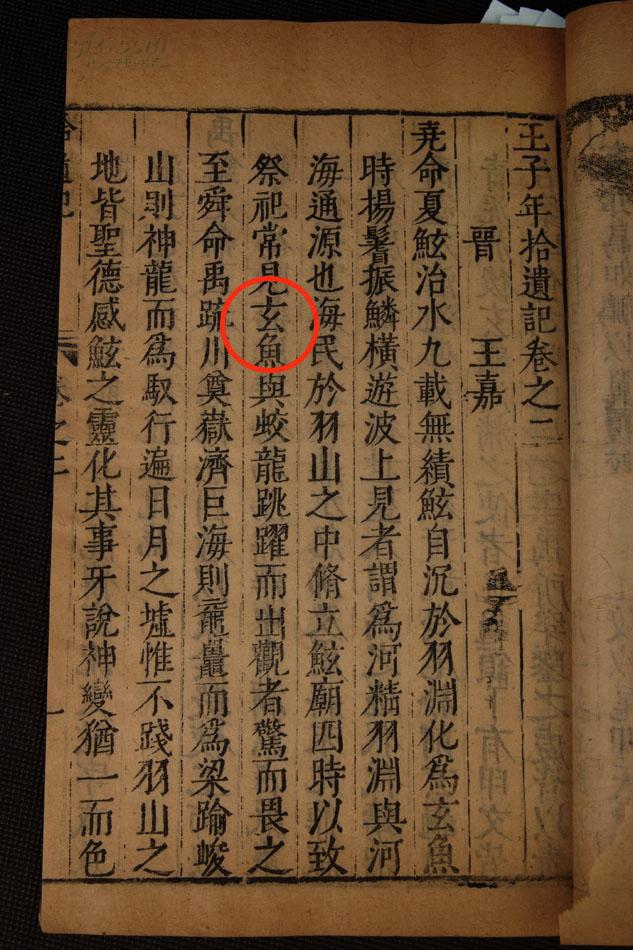 王子年拾遺記卷之二
晉 王嘉
尭命夏鮌治水九載無績鮌自沉於羽淵化爲玄魚
時揚鬐振鱗橫遊波上見者謂爲河精羽淵與河
海通源也海民於羽山之中脩立鮌廟四時以致
祭祀常見玄魚與蛟龍跳躍而出觀者驚而畏之
至舜命禹疏川奠嶽濟巨海則黿鼉而爲梁踰峻
山則神龍而爲馭行遍日月之墟惟不踐羽山之
地皆聖德感鮌之靈化其事牙說神變猶一而色